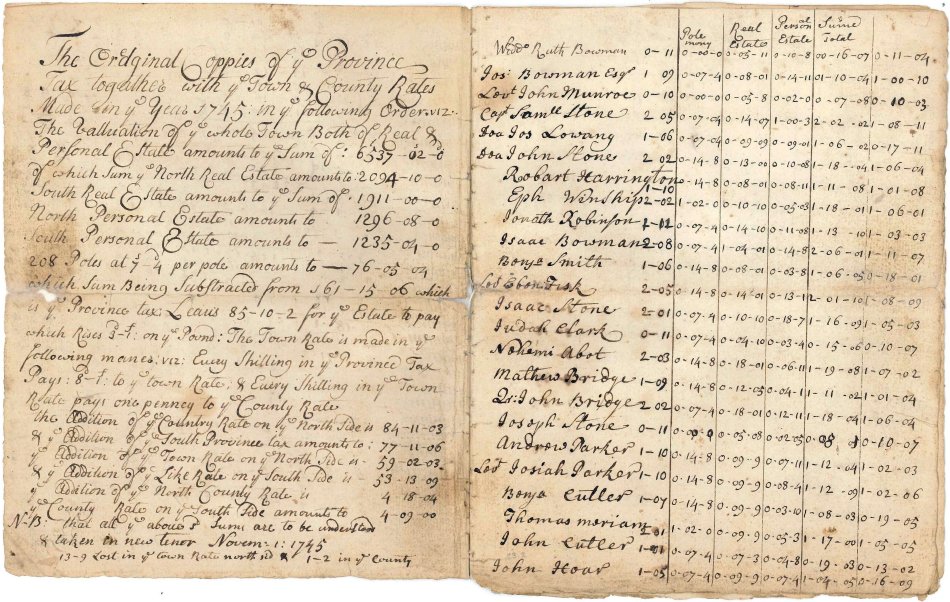 The Oridginal Coppies of yᵉ Province
Tax together with yᵉ Town & County Rates
Made in yᵉ Year 1745: in yᵉ following Order viz:
The Valuation of yᵉ whole Town Both of Real &
Personal Estate amounts to yᵉ Sum of: 6537-02-0
of which Sum yᵉ North Real Estate amounts to: 2094-10-0
South Real Estate amounts to yᵉ Sum of 1911-00-0
North Personal Estate amounts to 1296-08-0
South Personal Estate amounts to — 1235-04-0
208 Poles at 7ˢ-4ᵈ per pole amounts to — 76-05-04
which Sum Being Substracted from 161-15-06 which
is yᵉ Province tax: Leaus 85-10-2 for yᵉ Estate to pay
which Rises on yᵉ Pound: The Town Rate is made in yᵉ
following maner: viz: Euery Shilling in yᵉ Province Tax
Pays: to yᵉ town Rate; & Euery Shilling in yᵉ Town
Rate pays one penney to yᵉ County Rate
the Addition of yᵉ Country Rate on yᵉ North Side is 84-11-03
& yᵉ Addition of yᵉ South Province tax amounts to: 77-11-06
yᵉ Addition of yᵉ Town Rate on yᵉ North Side is - 59-02-03
& yᵉ Addition of yᵉ Like Rate on yᵉ South Side is - 53-13-09
yᵉ Addition of yᵉ North County Rate is 4-18-04
yᵉ County Rate on yᵉ South Side amounts to 4-09-00
N-B- that all yᵉ above sᵈ Sums are to be understood
& taken in new tenor Novemʳ 1: 1745
13-9 Lost in yᵉ town Rate north sd & 1-2 in yᵉ County
Pole mony | Real Estate | Personal Estate | Summe Total
Widᵒ Ruth Bowman 0-11 0-00-0 0-05-11 0-10-8 00-16-07 0-11-04
Jos: Bowman Esqʳ 1 09 0-07-4 0-08-01 0-14-11 01-10-04 1-00-10
Levᵗ John Munroe 0-10 0-00-0 0-05-8 0-02-0 0-07-08 0-10-03
Capᵗ Samˡˡ Stone 2 05 0-07-04 0-14-07 1-00-3 2-02-02 1-08-11
Dea Jos Lovang 1-06 0-07-04 0-09-09 0-09-01 1-06-02 0-17-11
Dea John Stone 2 02 0-14-8 0-13-00 0-10-08 1-18-04 1-06-04
Robart Harrington 1-10 0-14-8 0-08-01 0-08-11 1-11-08 1-01-08
Eph Winship 2-02 1-02-0 0-10-10 0-05-03 1-18-01 1-06-01
Jonath Robinson 1-12 0-07-4 0-14-10 0-11-08 1-13-10 1-03-03
Isaac Bowman 2-08 0-07-4 1-04-01 0-14-8 2-06-01 1-11-07
Benjᵃ Smith 1-06 0-14-8 0-08-01 0-03-8 1-06-05 0-18-01
Leᵗ Eben Fisk 2-05 0-14-8 0-14-01 0-13-1 2-01-10 1-08-09
Isaac Stone 2-01 0-07-4 0-10-10 0-18-7 1-16-09 1-05-03
Judah Clark 0-11 0-07-4 0-04-10 0-03-4 0-15-6 0-10-07
Nehemi Abot 2-03 0-14-8 0-18-01 0-06-11 1-19-08 1-07-02
Mathew Bridge 1-09 0-14-8 0-12-05 0-04-1 1-11-02 1-01-04
Qr: John Bridge 2 02 0-07-4 0-18-01 0-12-11 1-18-04 1-06-04
Joseph Stone 0-11 0-05-08 0-10-07
Andrew Parker 1-10 0-14-8 0-09-9 0-07-11 1-12-04 1-02-03
Levᵗ Josiah Parker 1-10 0-14-8 0-09-9 0-08-4 1-12-09 1-02-06
Benjᵃ Cutler 1-07 0-14-8 0-09-0 0-03-10 1-08-03 0-19-05
Thomas meriam 2-01 1-02-0 0-09-3 0-05-3 1-17-00 1-05-05
John Cutler 1-01 0-07-4 0-07-3 0-04-8 0-19-3 0-13-02
John Hoar 1-05 0-07-4 0-09-9 0-07-4 1-04-05 0-16-09